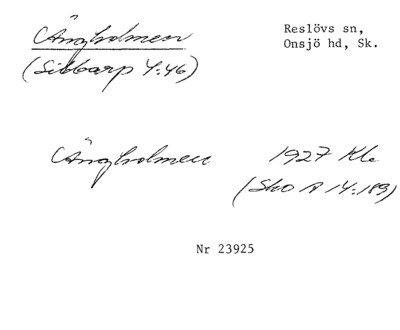 Ängholmen
(Sibbarp 4:46)
Reslövs sn,
Onsjö hd, Sk.
Ängholmen 1927 Kle
(Sko A 14:189)
Nr 23925